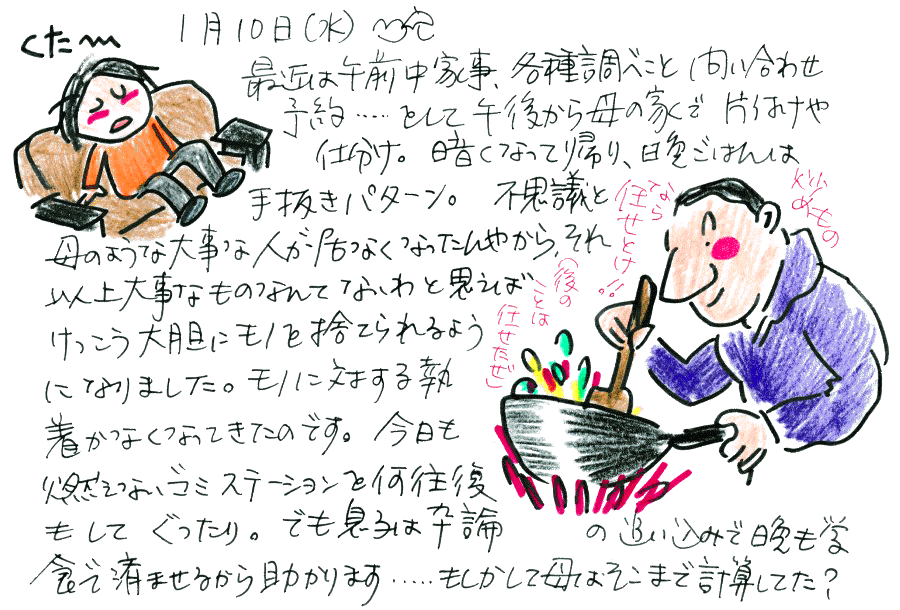 くた〜
1月10日(水)
最近は午前中家事、各種調べごと問い合わせ
予約……として午後から母の家で片付けや
仕分け。暗くなって帰り、晩ごはんは
手抜きパターン。不思議と
母のような大事な人が居なくなったんやから、それ
以上大事なものなんてないわと思えば
けっこう大胆にモノを捨てられるよう
になりました。モノに対する執
着がなくなってきたのです。今日も
燃えないゴミステーションを何往復
もしてぐったり。でも息子は卒論
の追い込みで晩も学
食で済ませるから助かります……もしかして母はそこまで計算してた?
炒めもの
なら
任せとけ!!
(後の
ことは
任せたぜ)